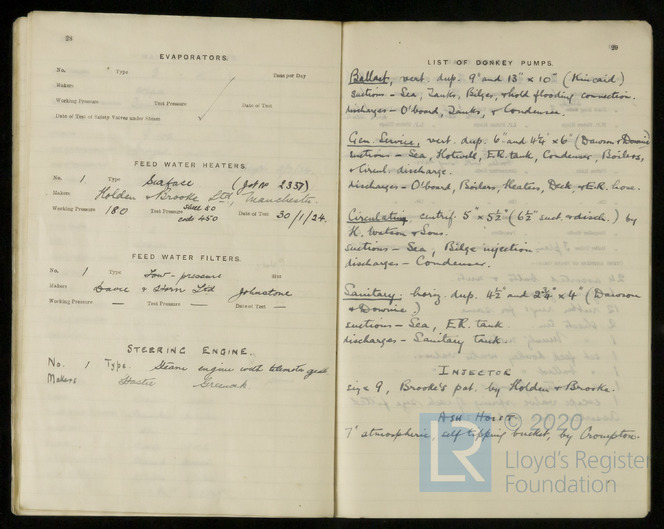 28
EVAPORATORS.
No. Type Tons per Day
Makers
Working Pressure Test Pressure Date of Test
Date of Test of Safety Valves under Steam
FEED WATER HEATERS.
No. 1 Type Surface (Job No 2357)
Makers Holden & Brooke Ltd, Manchester.
Working Pressure 180 Test Pressure shell 80 ends 450 Date of Test 30/1/24.
FEED WATER FILTERS.
No. 1 Type Low-pressure Size
Makers & Horn Ltd Johnstone
Working Pressure — Test Pressure — Date of Test —
STEERING ENGINE.
No. 1 Type. Steam engine with telemotor gear
Makers Hastie Greenock
29
LIST OF DONKEY PUMPS.
Ballast, vert. dup. 9" and 13" × 10" (Kincaid)
suctions – Sea, Tanks, Bilges, & hold flooding connection.
discharges – O'board, Tanks, & Condenser.
Gen. Service, vert. dup. 6" and 4¼" × 6" (Dawson & Downie)
suctions – Sea, Hotwell, E.R. tank, Condenser, Boilers,
& Circul. discharge.
discharges – O'board, Boilers, Heaters, Deck & E.R. hose.
Circulating, centrif. 5" × 5½" (6½" suct. & disch.) by
H. Watson & Sons.
suctions – Sea, Bilge injection
discharges – Condenser.
Sanitary. horiz. dup. 4½" and × 4" (Dawson
& Downie)
suctions – Sea, E.R. tank.
discharges – Sanitary tank.
INJECTOR
size 9, Brooke's pat. by Holden & Brooke.
ASH HOIST
7" atmospheric, self tipping bucket, by Crompton.
© 2020
LR
Lloyd's Register
Foundation